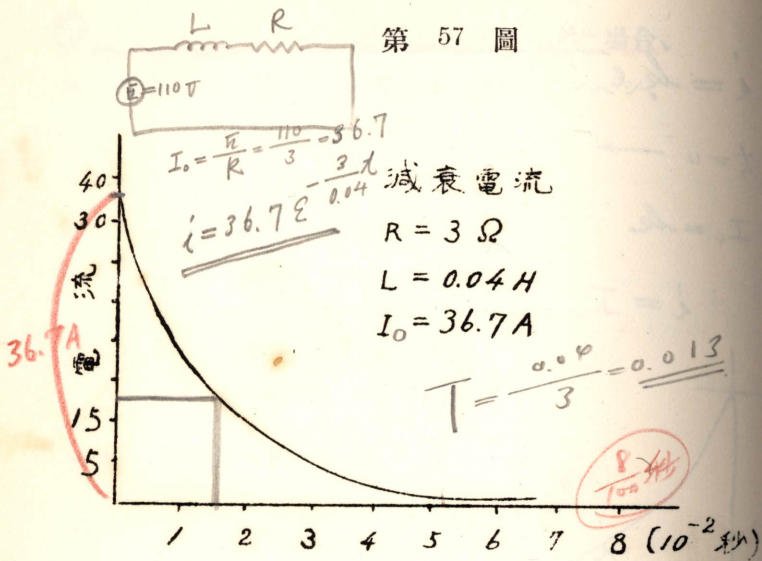 第 57 圖
L R
E=110V
I₀ = E/R = 110/3 = 36.7
i = 36.7 ε^(-3/0.04 t)
減衰電流
R = 3 Ω
L = 0.04 H
I₀ = 36.7 A
T = 0.04/3 = 0.013
36.7A
電流
40
30
15
5
8/100 秒
1 2 3 4 5 6 7 8 (10⁻² 秒)